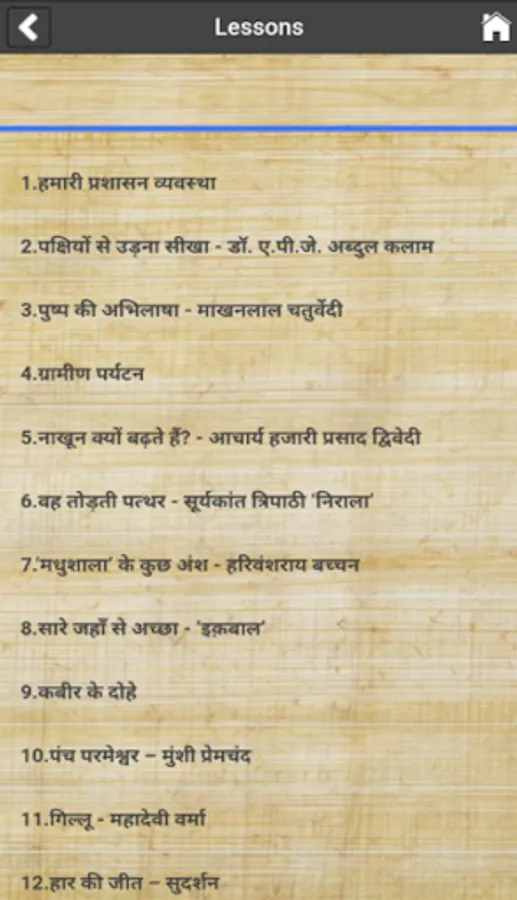 Lessons
1.हमारी प्रशासन व्यवस्था
2.पक्षियों से उड़ना सीखा - डॉ. ए.पी.जे. अब्दुल कलाम
3.पुष्प की अभिलाषा - माखनलाल चतुर्वेदी
4.ग्रामीण पर्यटन
5.नाखून क्यों बढ़ते हैं? - आचार्य हजारी प्रसाद द्विवेदी
6.वह तोड़ती पत्थर - सूर्यकांत त्रिपाठी ‘निराला’
7.‘मधुशाला’ के कुछ अंश - हरिवंशराय बच्चन
8.सारे जहाँ से अच्छा - ‘इक़बाल’
9.कबीर के दोहे
10.पंच परमेश्वर – मुंशी प्रेमचंद
11.गिल्लू - महादेवी वर्मा
12.हार की जीत – सुदर्शन